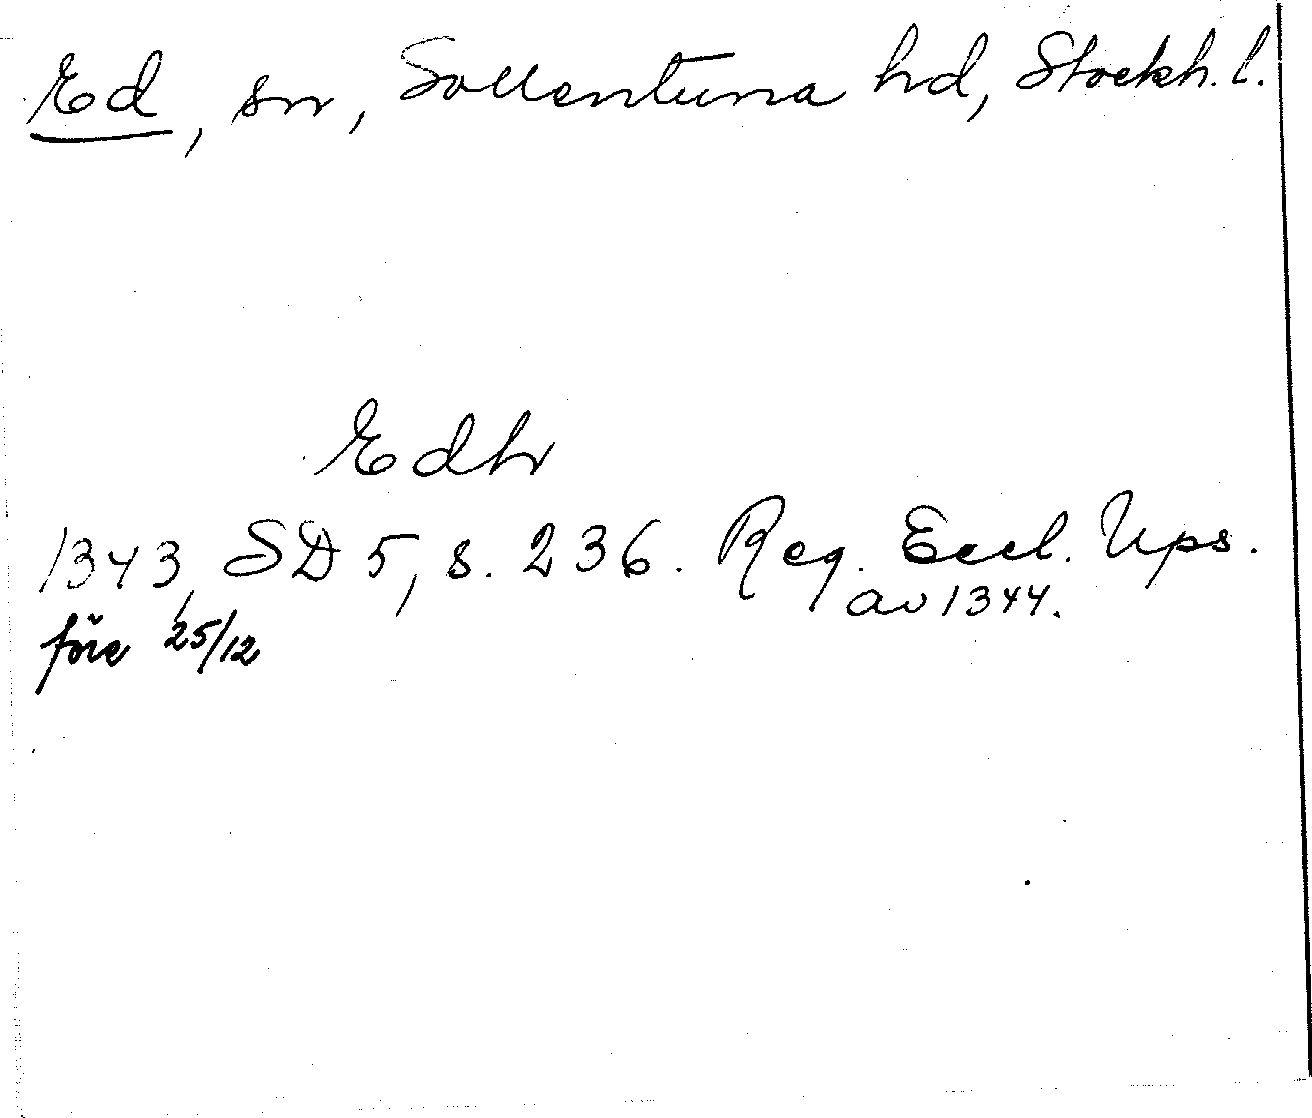 Ed, sn, Sollentuna hd, Stockh. l.
Edh
1343, SD 5, s. 236. Reg. Eccl. Ups.
före 25/12 av 1344.